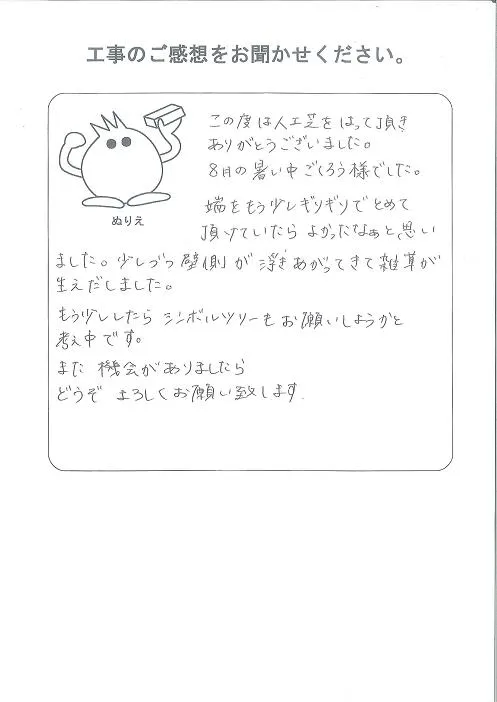 工事のご感想をお聞かせください。
この度は人工芝をはって頂き
ありがとうございました。
8月の暑い中ごくろう様でした。
端をもう少しギリギリでとめて
頂けていたらよかったなぁと思い
ぬりえ
ました。少しづつ壁側が浮きあがってきて雑草が
生えだしました。
もう少ししたらシンボルツリーもお願いしようかと
考え中です。
また機会がありましたら
どうぞよろしくお願い致します。